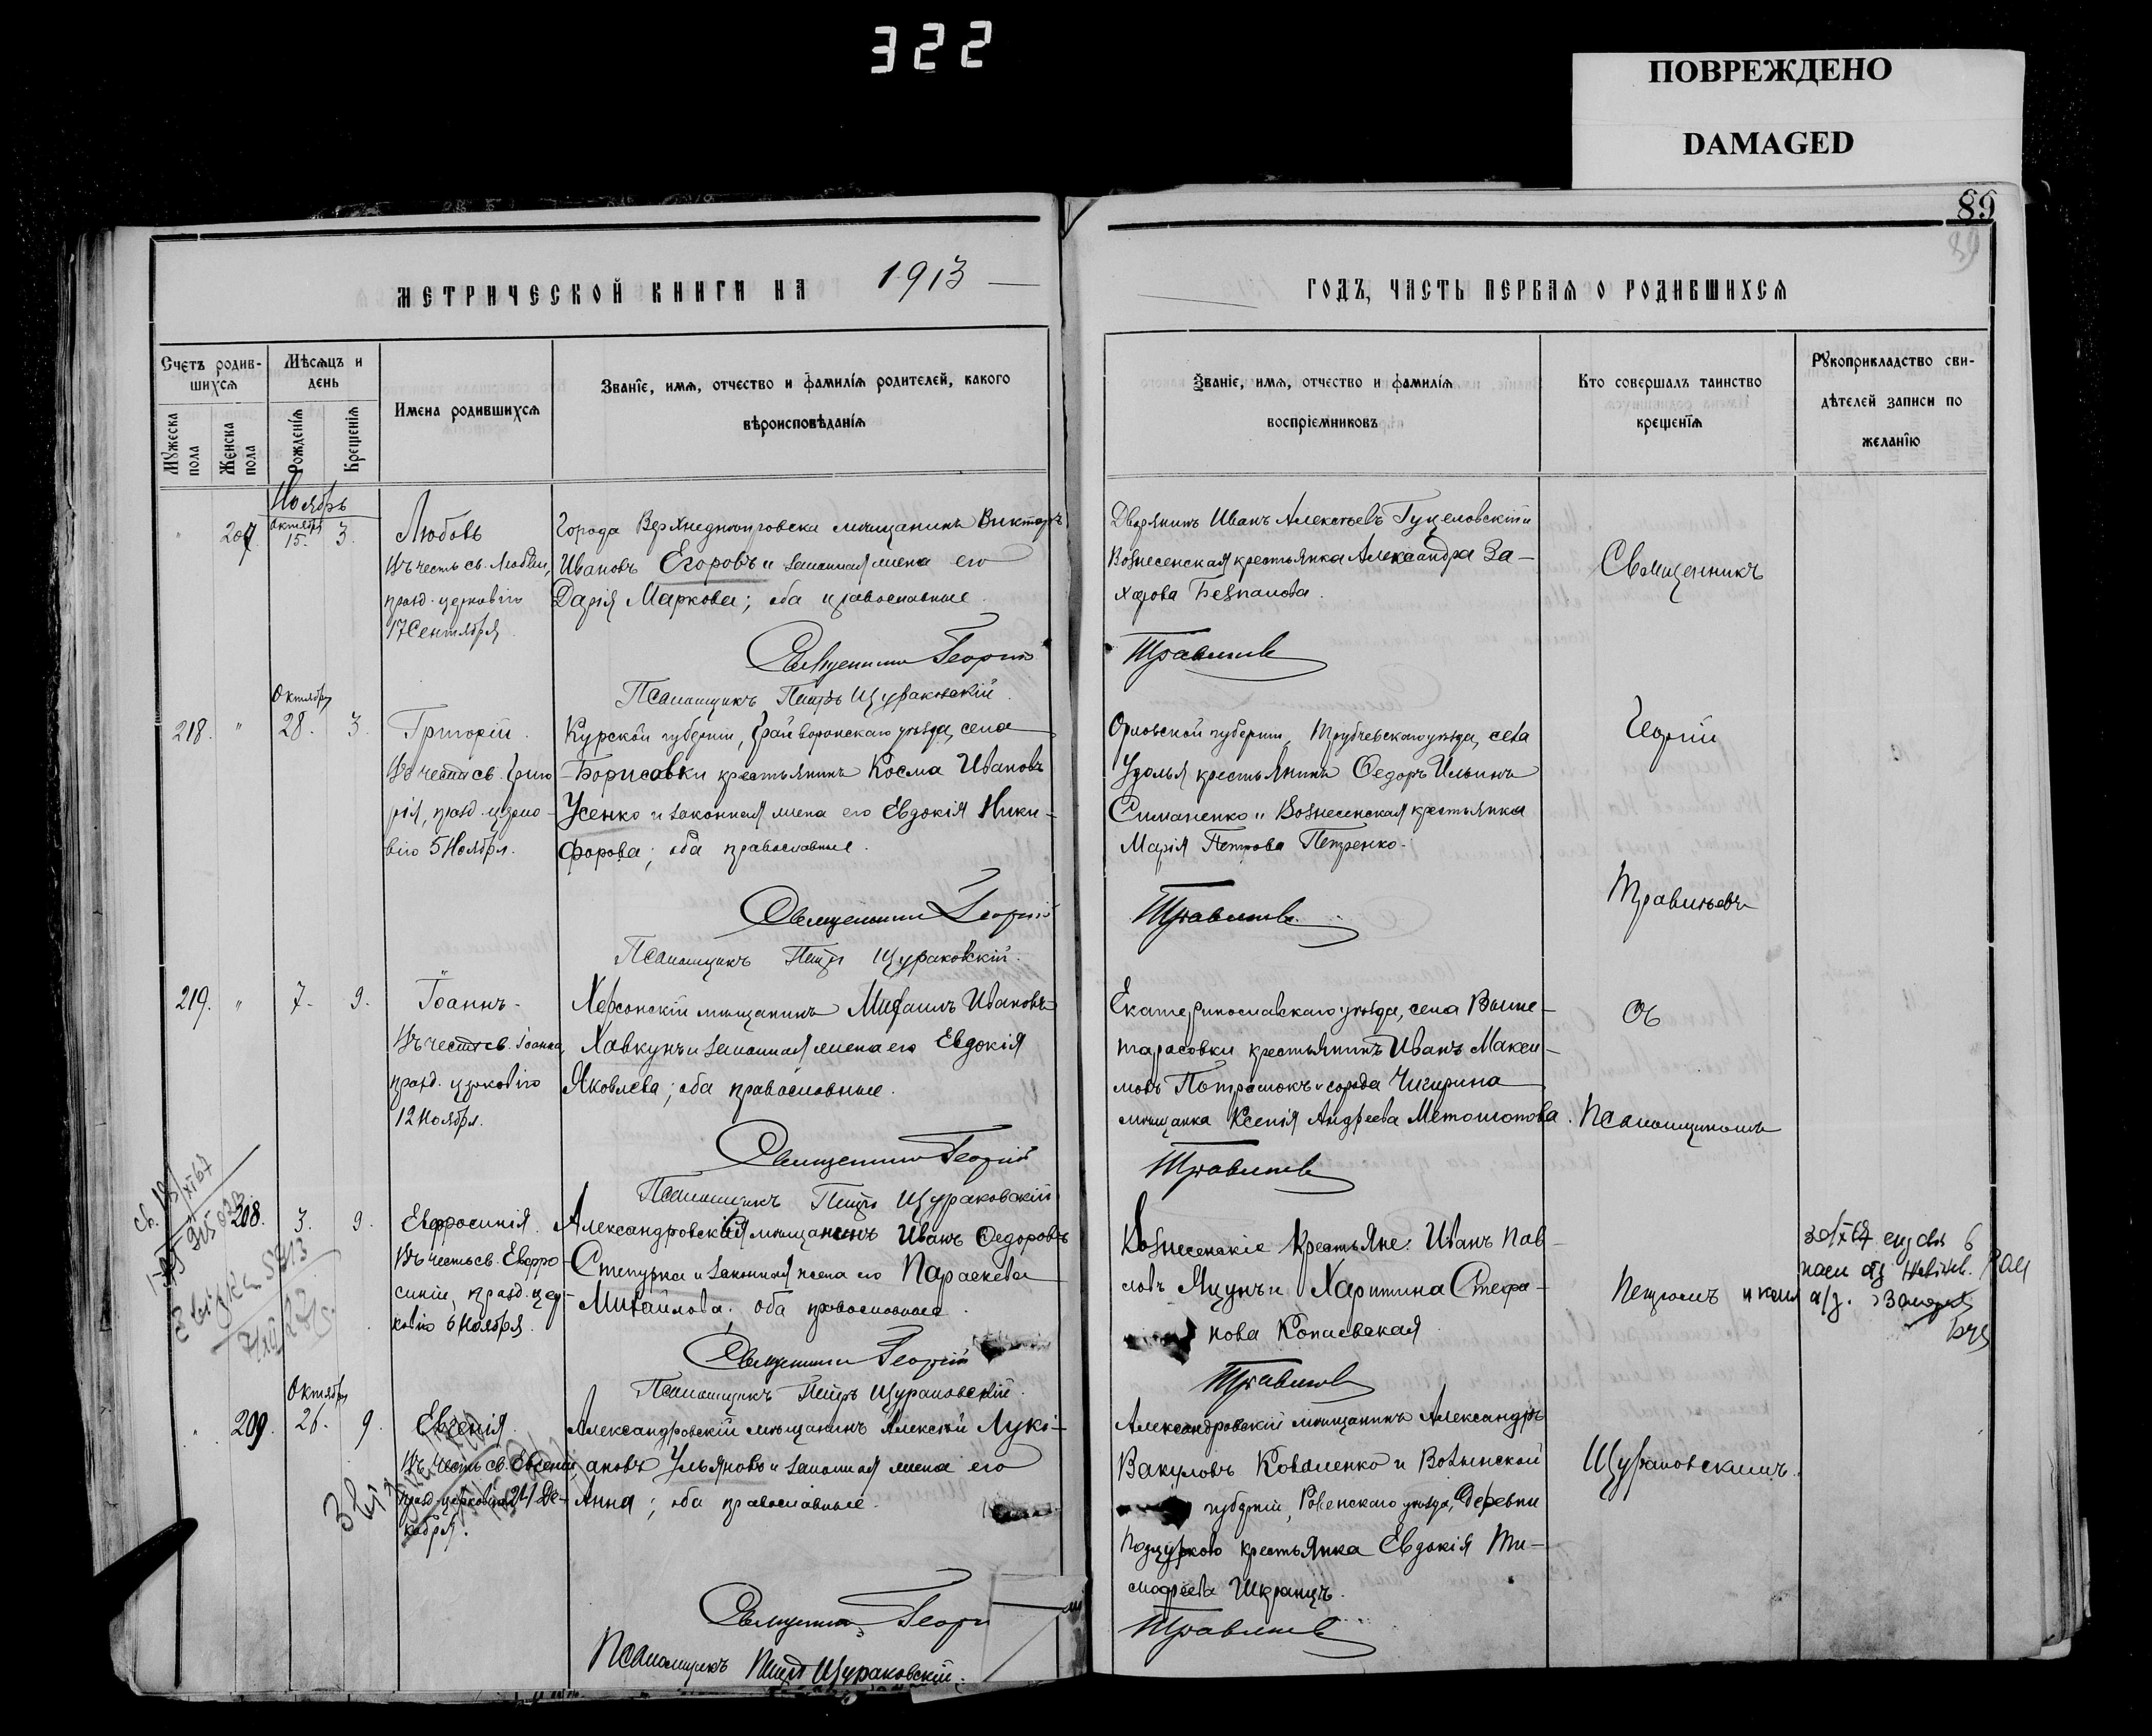 322
ПОВРЕЖДЕНО
DAMAGED
89
МЕТРИЧЕСКОЙ КНИГИ НА 1913
ГОДЪ, ЧАСТЬ ПЕРВАЯ О РОДИВШИХСЯ
Счетъ родив-
шихся
Мужеска пола
Женска пола
Мѣсяцъ и
день
Рожденія
Крещенія
Имена родившихся
Званіе, имя, отчество и фамилія родителей, какого
вѣроисповѣданія
Званіе, имя, отчество и фамилія
воспріемниковъ
Кто совершалъ таинство
крещенія
Рукоприкладство сви-
дѣтелей записи по
желанію
Ноябрь
" 207. Октября 15. 3.
Любовь
Въ честь св. Любви,
празд. церковію
17 Сентября.
Города Верхнеднѣпровска мѣщанинъ Викторъ
Ивановъ Егоровъ и законная жена его
Дарія Маркова; оба православные.
Священникъ Георгій
Псаломщикъ Петръ Щураковскій.
Дворянинъ Иванъ Алексѣевъ и
Вознесенская крестьянка Александра За-
харова
Травинъ
218. " Октября 28. 3.
Григорій.
Въ честь св. Григо
рія, празд. церко-
вію 5 Ноября.
Курской губерніи, Грайворонскаго уѣзда, села
Борисовки крестьянинъ Косма Ивановъ
Усенко и законная жена его Евдокія Ники-
форова; оба православные.
Священникъ Георгій
Псаломщикъ Петръ Щураковскій.
Орловской губерніи, Трубчевскаго уѣзда, села
крестьянинъ Ѳедоръ Ильинъ
Симаненко и Вознесенская крестьянка
Марія Петрова Петренко.
219. " 7. 9.
Іоаннъ.
Въ честь св. Іоанна,
празд. церковію
12 Ноября.
Херсонскій мѣщанинъ Михаилъ Ивановъ
Хавкунъ и законная жена его Евдокія
Яковлева; оба православные.
Священникъ Георгій
Псаломщикъ Петръ Щураковскій
Екатеринославскаго уѣзда, села Выше-
тарасовки крестьянинъ Иванъ Макси-
мовъ и города Чигирина
мѣщанка Ксенія Андреева
208. 3. 9.
Евфросинія.
Въ честь св. Евфро-
синіи, празд. цер-
ковію 6 Ноября.
Александровскій мѣщанинъ Иванъ Ѳедоровъ
Степурка и законная жена его Параскева
Михайлова; оба православные.
Священникъ Георгій
Псаломщикъ Петръ Щураковскій.
Вознесенскіе крестьяне: Иванъ Пав-
ловъ Яцунъ и Харитина Стефа-
нова Копаевская
" 209. Октября 26. 9.
Евгенія.
Въ честь св. Евгеніи,
празд. церковію 24 Де-
кабря.
Александровскій мѣщанинъ Алексѣй Лукі-
ановъ Ульяновъ и законная жена его
Анна; оба православные.
Священникъ Георгі
Псаломщикъ Петръ Щураковскій.
Александровскій мѣщанинъ Александръ
Вакуловъ Коваленко и Волынской
губерніи, Ровенскаго уѣзда, деревни
крестьянка Евдокія Ти-
моѳеева
Священникъ
Георгій
Травиньевъ
Съ
Псаломщикомъ
Петромъ
Щураковскимъ.